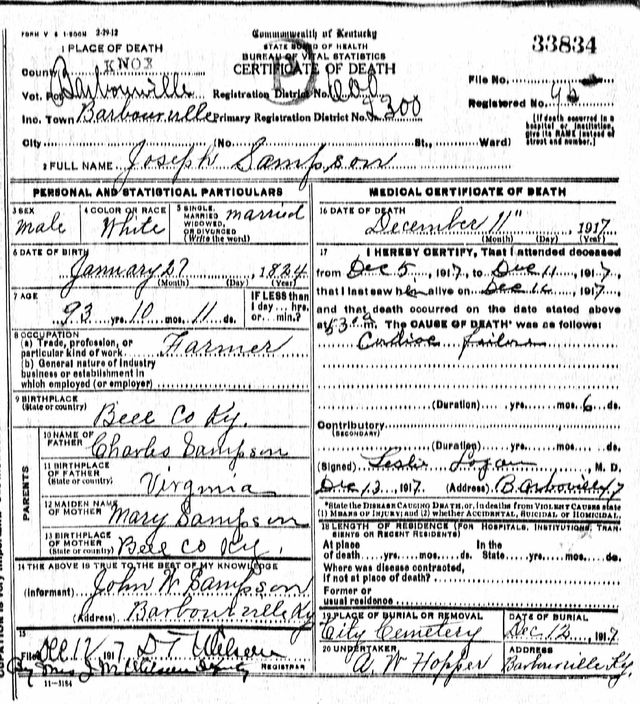 FORM V S 1-500M 2-29-12
Commonwealth of Kentucky
STATE BOARD OF HEALTH
BUREAU OF VITAL STATISTICS
CERTIFICATE OF DEATH
33834
1 PLACE OF DEATH
County KNOX
Vot. Pct. Barbourville Registration District No.
File No.
Inc. Town Barbourville Primary Registration District No. 2300
Registered No.
[If death occurred in a hospital or institution, give its NAME instead of street and number.]
City (No. St., Ward)
2 FULL NAME Joseph Sampson
PERSONAL AND STATISTICAL PARTICULARS
3 SEX Male
4 COLOR OR RACE White
5 SINGLE, MARRIED WIDOWED, OR DIVORCED (Write the word) married
6 DATE OF BIRTH
January 27, 1824
(Month) (Day) (Year)
7 AGE
93 yrs. 10 mos. 11 ds.
IF LESS than 1 day... hrs. or... min.?
8 OCCUPATION
(a) Trade, profession, or particular kind of work Farmer
(b) General nature of industry business or establishment in which employed (or employer)
9 BIRTHPLACE
(State or country) Bell Co Ky.
PARENTS
10 NAME OF FATHER Charles Sampson
11 BIRTHPLACE OF FATHER (State or country) Virginia
12 MAIDEN NAME OF MOTHER Mary Sampson
13 BIRTHPLACE OF MOTHER (State or country) Bell Co Ky.
14 THE ABOVE IS TRUE TO THE BEST OF MY KNOWLEDGE
(Informant) John W Sampson
(Address) Barbourville Ky
15
Filed Dec 12 1917 D T
REGISTRAR
11-3184
MEDICAL CERTIFICATE OF DEATH
16 DATE OF DEATH
December 11", 1917
(Month) (Day) (Year)
17 I HEREBY CERTIFY, That I attended deceased
from Dec 5, 1917, to Dec 11, 1917,
that I last saw him alive on Dec 11, 1917,
and that death occurred on the date stated above
at m. The CAUSE OF DEATH* was as follows:
Cardiac failure
(Duration) yrs. mos. 6 ds.
Contributory
(SECONDARY)
(Duration) yrs. mos. ds.
(Signed) Leslie Logan, M. D.
Dec 13, 1917 (Address)
*State the DISEASE CAUSING DEATH, or, in deaths from VIOLENT CAUSES state (1) MEANS OF INJURY; and (2) whether ACCIDENTAL, SUICIDAL or HOMICIDAL.
18 LENGTH OF RESIDENCE (FOR HOSPITALS, INSTITUTIONS, TRANSIENTS OR RECENT RESIDENTS)
At place of death yrs. mos. ds. In the State yrs. mos. ds.
Where was disease contracted, if not at place of death?
Former or usual residence
19 PLACE OF BURIAL OR REMOVAL
City Cemetery
DATE OF BURIAL
Dec 12, 1917
20 UNDERTAKER
A. W Hopper
ADDRESS
Barbourville Ky.